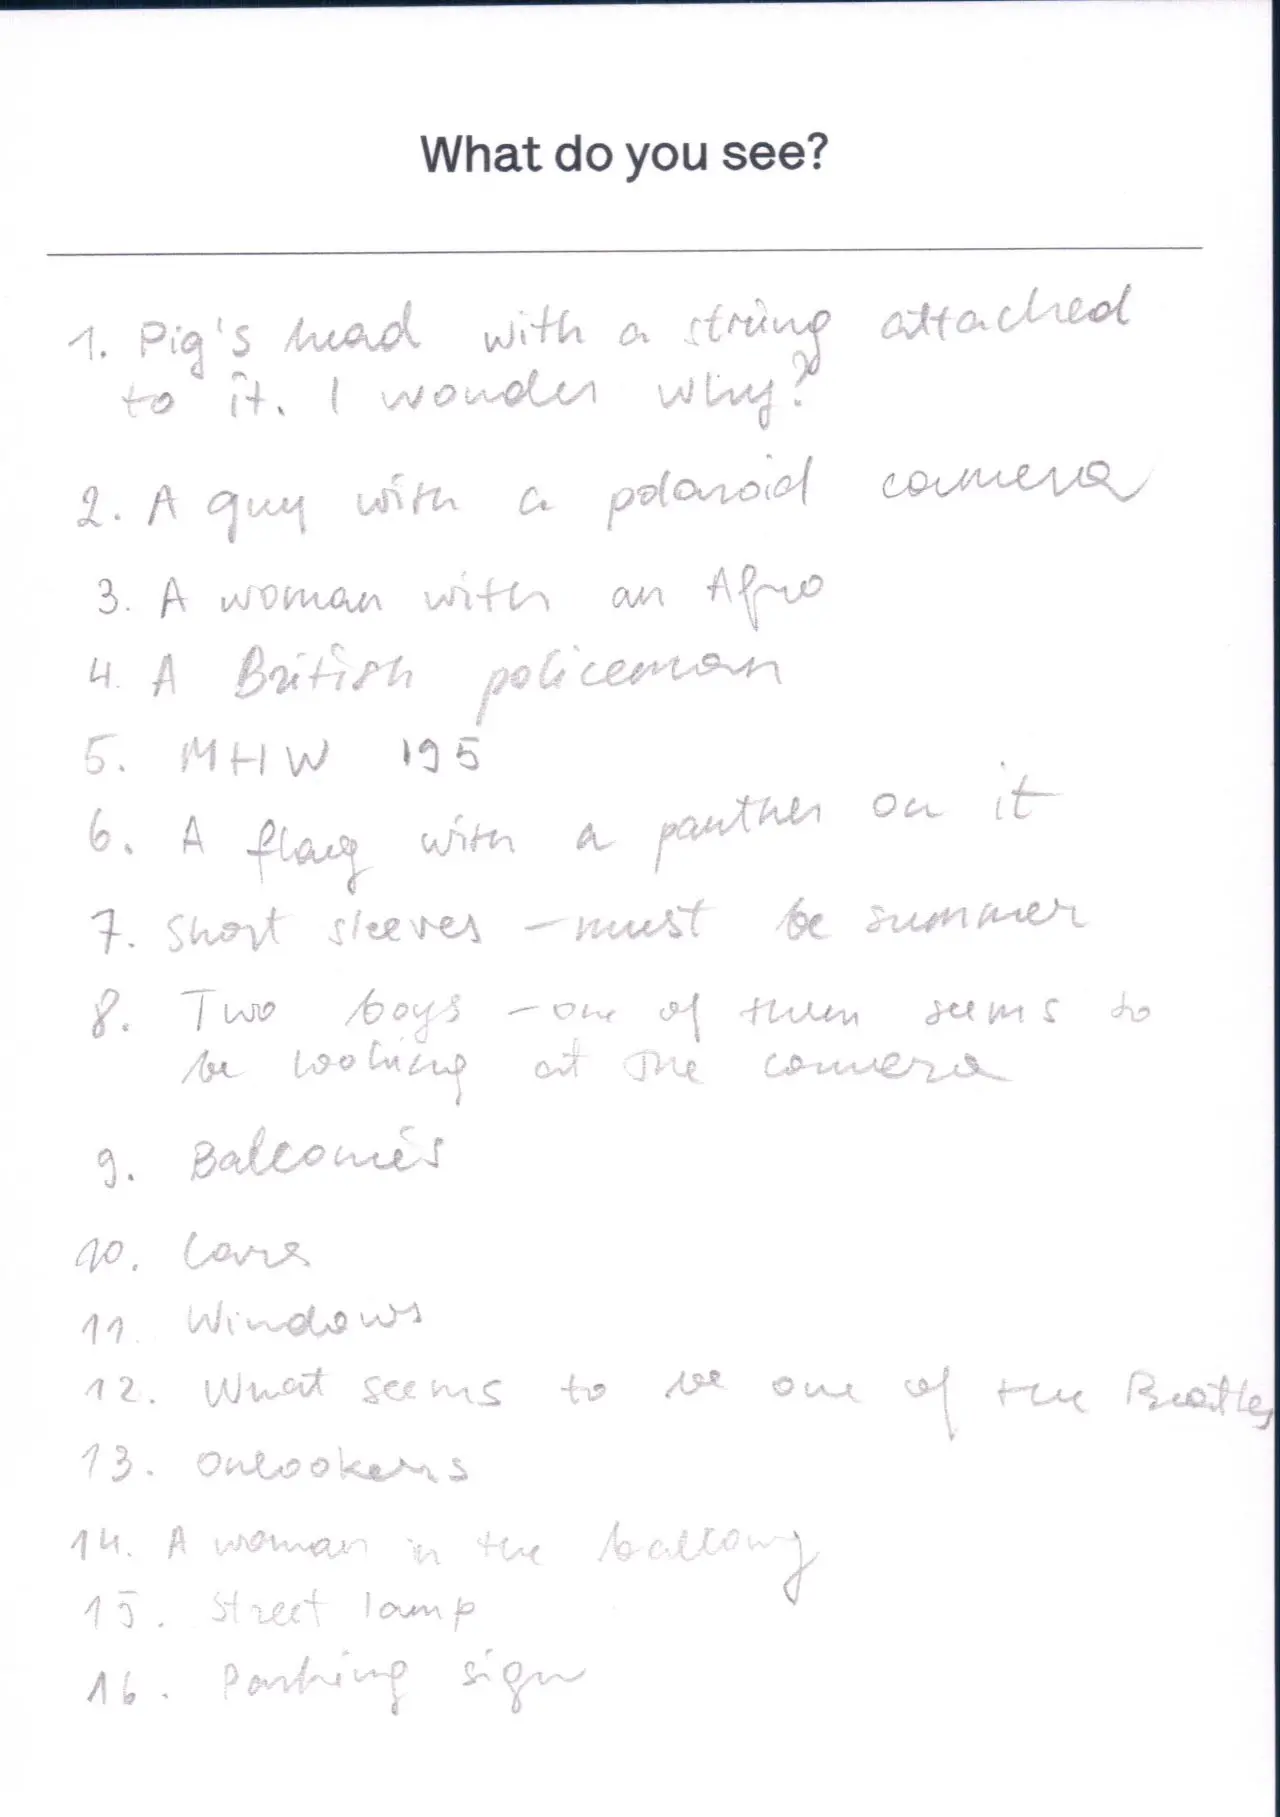 What do you see?
1. Pig's head with a string attached
to it. I wonder why?
2. A guy with a polaroid camera
3. A woman with an Afro
4. A British policeman
5. MHW 195
6. A flag with a panther on it
7. Short sleeves - must be summer
8. Two boys - one of them seems to
be looking at the camera
9. Balconies
10. Cars
11. Windows
12. What seems to be one of the Beatles
13. Onlookers
14. A woman in the balcony
15. Street lamp
16. Parking sign